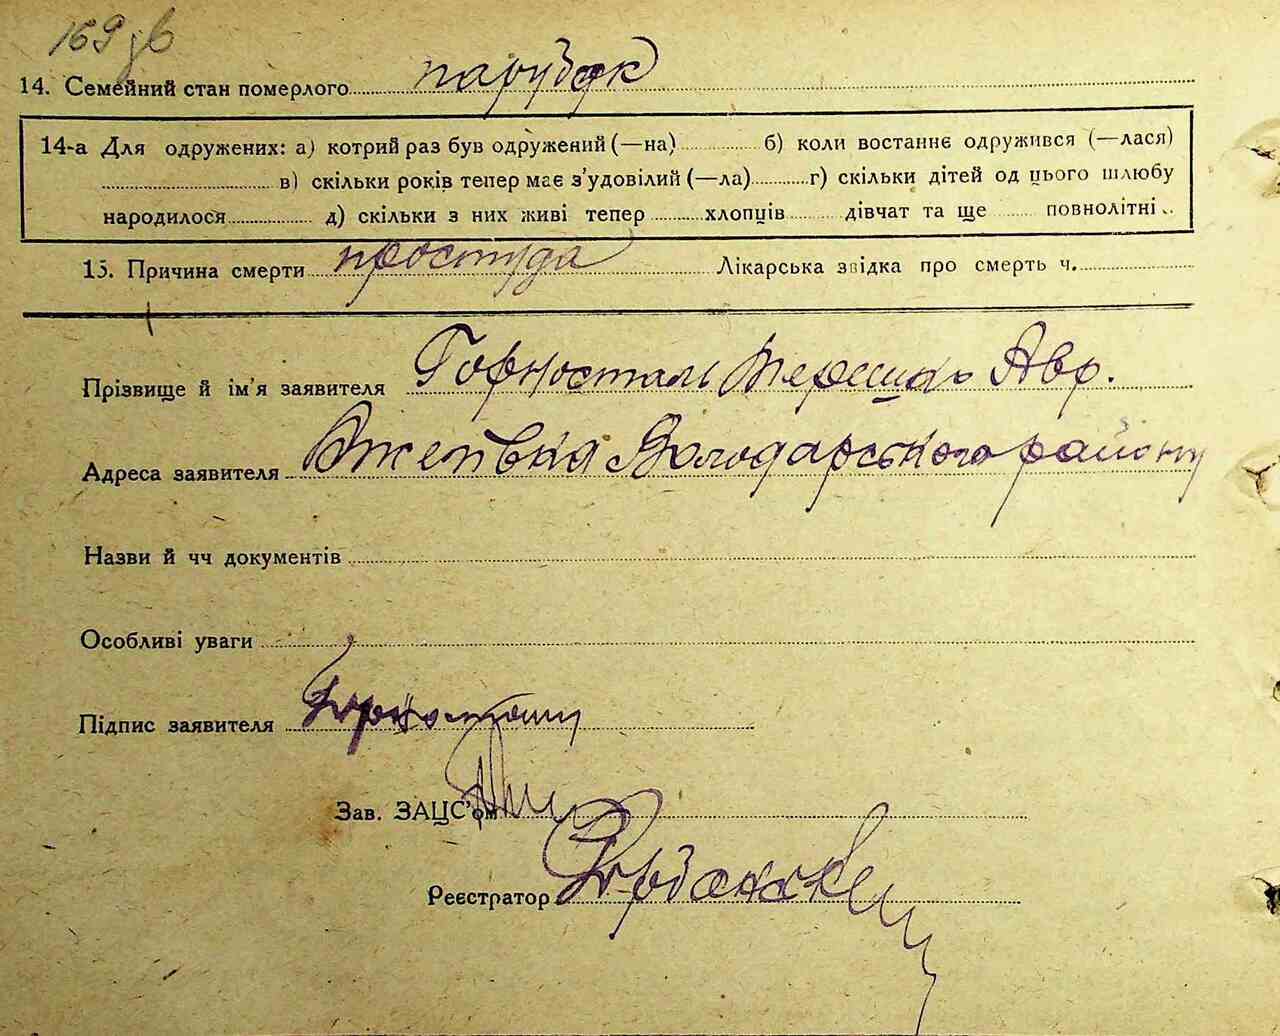 169 зв
14. Семейний стан померлого парубок
14-а Для одружених: а) котрий раз був одружений (—на) б) коли востаннє одружився (—лася)
в) скільки років тепер має з'удовілий (—ла) г) скільки дітей од цього шлюбу
народилося д) скільки з них живі тепер хлопців дівчат та ще повнолітні
15. Причина смерти простуда Лікарська звідка про смерть ч.
Прізвище й ім'я заявителя Горносталь Терешко Авр.
Адреса заявителя Володарського району
Назви й чч документів
Особливі уваги
Підпис заявителя
Зав. ЗАЦС'ом
Реєстратор